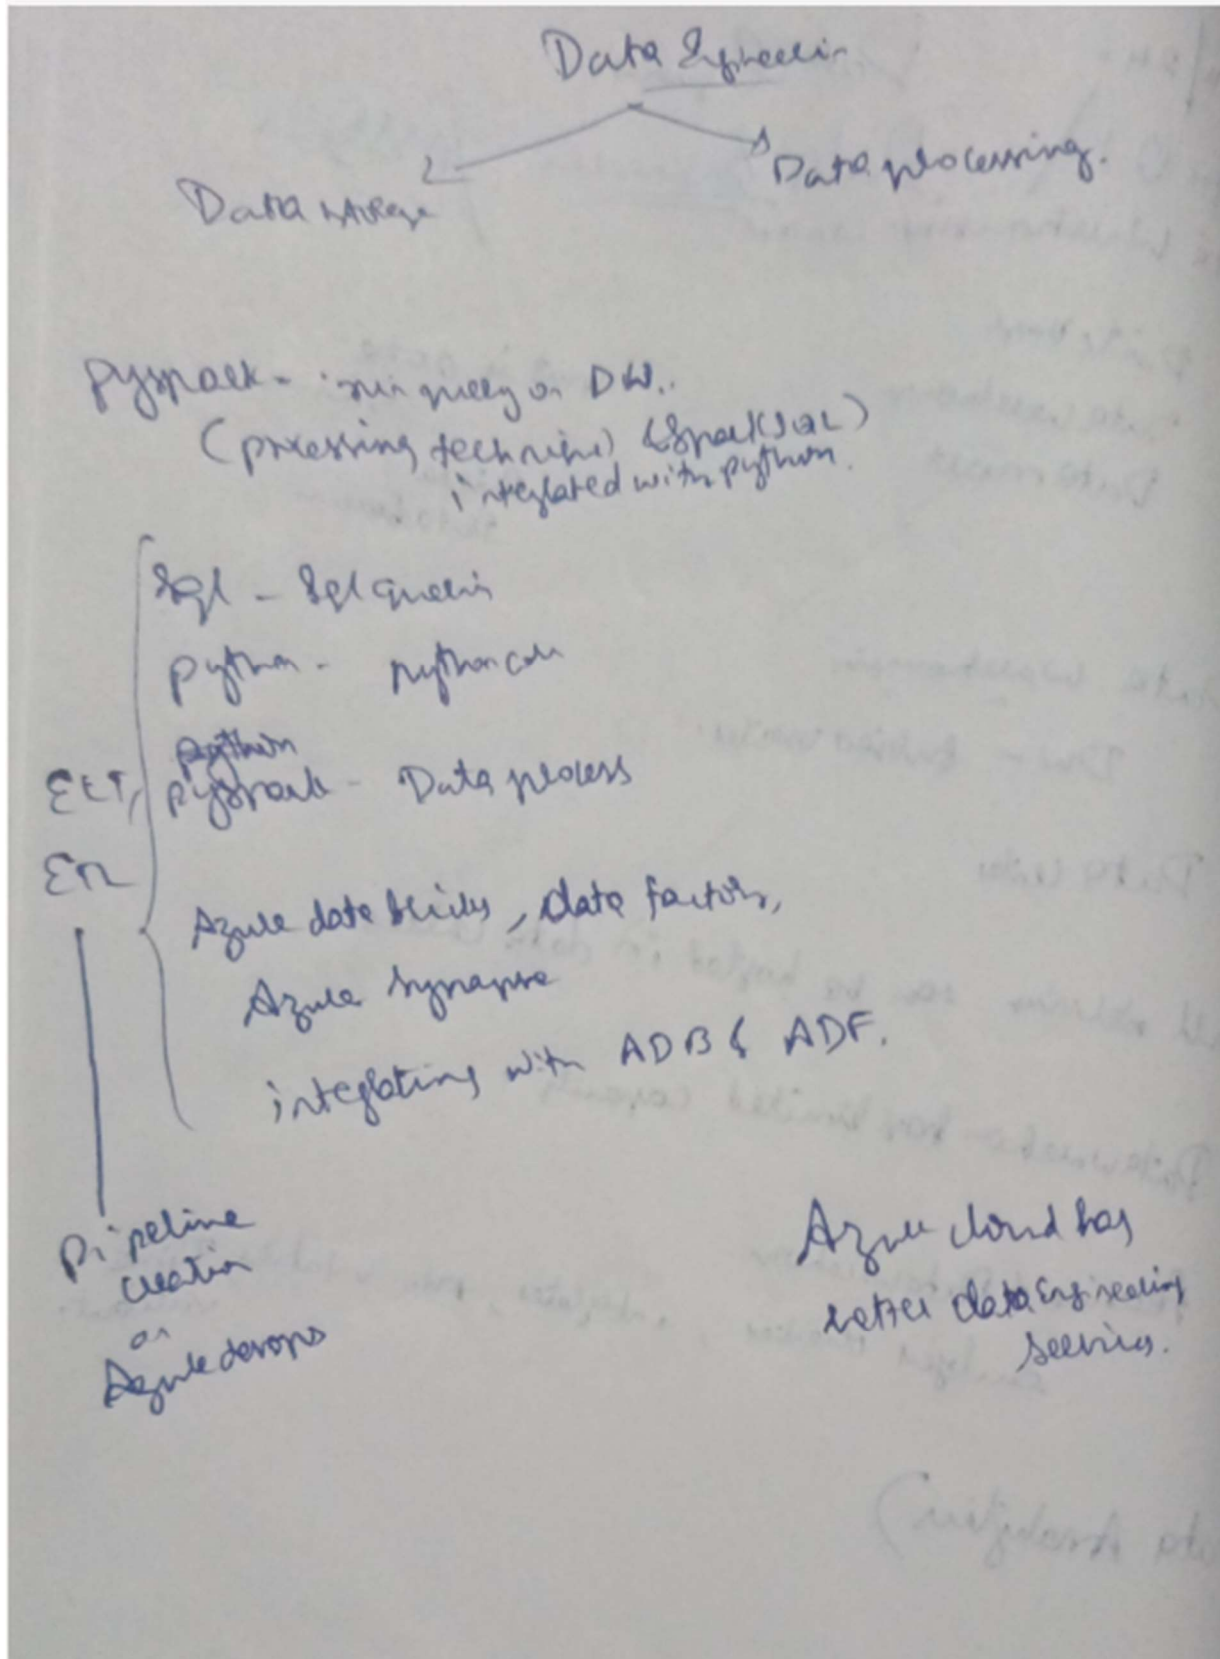 Data Engineerin
Data storage
Data processing.
pyspark - run query on DW..
(processing technique) (Spark SQL)
integrated with python.
Sql - Sql queries
python - python code
python
ELT, pyspark - Data process
ETL
Azure data bricks, data factory,
Azure Synapse
integrating with ADB & ADF.
Pipeline
creation
on
Azure devops
Azure cloud has
better data Engineering
services.